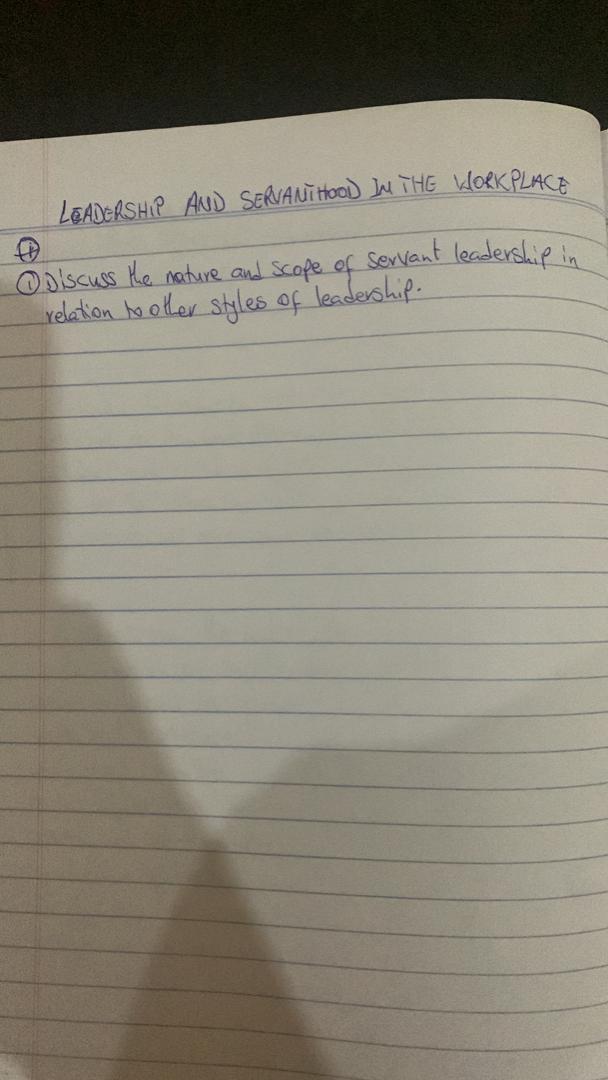 LEADERSHIP AND SERVANTHOOD IN THE WORKPLACE
① Discuss the nature and scope of servant leadership in
relation to other styles of leadership.